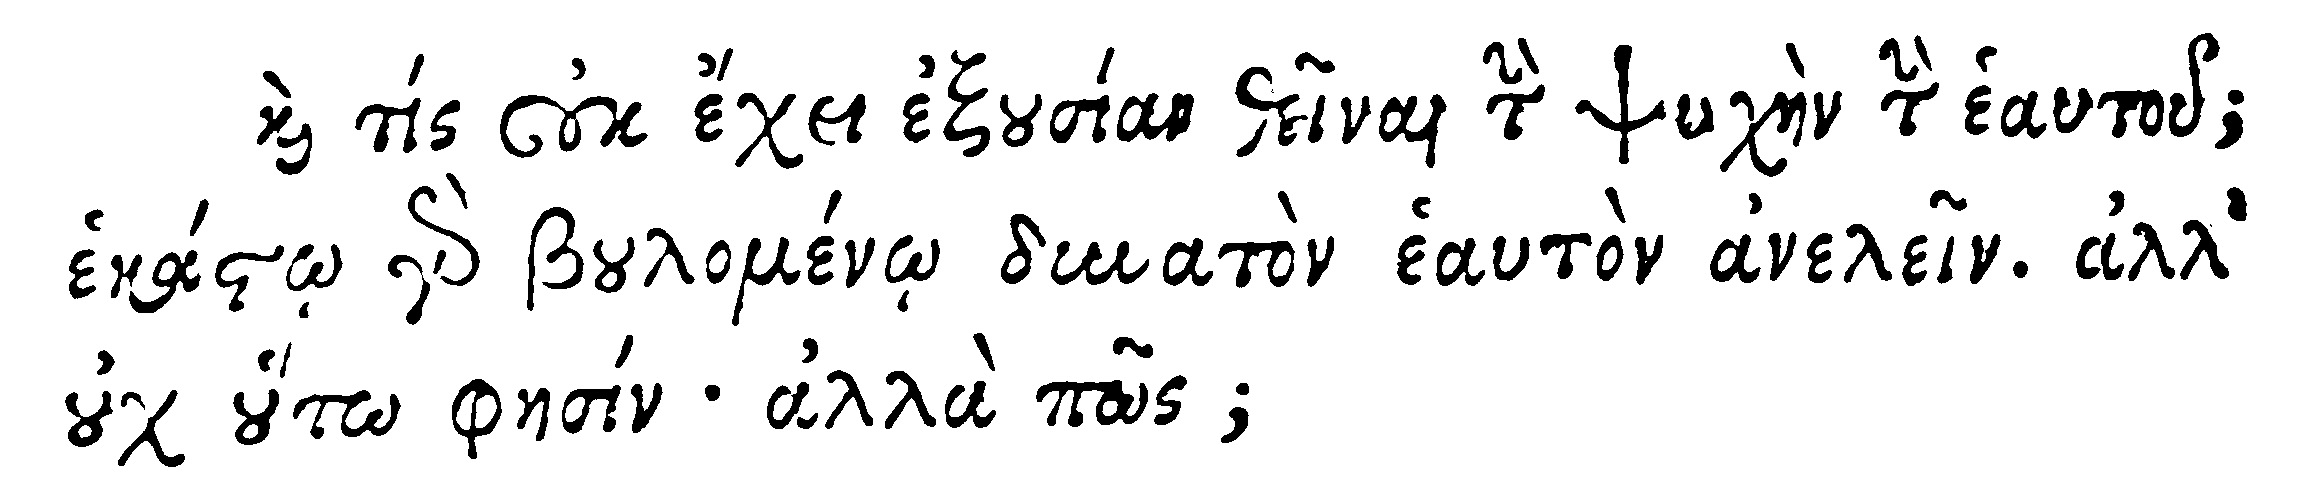 ϗ̀ τίς οὐκ ἔχει ἐξȣσίαν θεῖναι τὴν ψυχὴν τὴν ἑαυτοῦ;
ἑκάϛῳ γὰρ βȣλομένῳ δυνατὸν ἑαυτὸν ἀνελεῖν. ἀλλ'
ȣ̓χ ȣ̔́τω φησίν· ἀλλὰ πῶς;